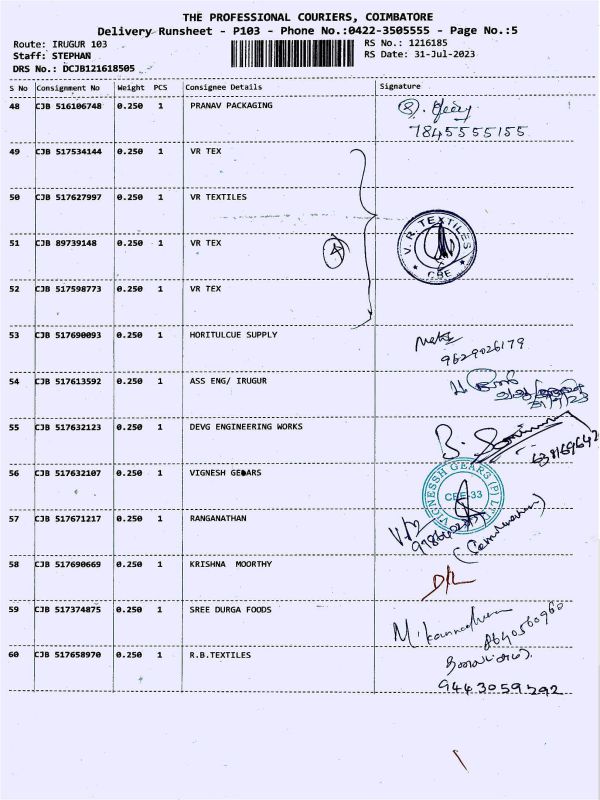 THE PROFESSIONAL COURIERS, COIMBATORE
Delivery Runsheet - P103 - Phone No.:0422-3505555 - Page No.:5
Route: IRUGUR 103 RS No.: 1216185
Staff: STEPHAN RS Date: 31-Jul-2023
DRS No.: DCJB121618505
S No Consignment No Weight PCS Consignee Details Signature
48 CJB 516106748 0.250 1 PRANAV PACKAGING
7845555155
49 CJB 517534144 0.250 1 VR TEX
50 CJB 517627997 0.250 1 VR TEXTILES
V.R. TEXTILES
CBE
51 CJB 89739148 0.250 1 VR TEX
4
52 CJB 517598773 0.250 1 VR TEX
53 CJB 517690093 0.250 1 HORITULCUE SUPPLY
9629026179
54 CJB 517613592 0.250 1 ASS ENG/ IRUGUR
31/7/23
55 CJB 517632123 0.250 1 DEVG ENGINEERING WORKS
56 CJB 517632107 0.250 1 VIGNESH GEARS
VIGNESSH GEARS (P) LT
CBE-33
57 CJB 517671217 0.250 1 RANGANATHAN
58 CJB 517690669 0.250 1 KRISHNA MOORTHY
59 CJB 517374875 0.250 1 SREE DURGA FOODS
8640560960
60 CJB 517658970 0.250 1 R.B.TEXTILES
9443059292